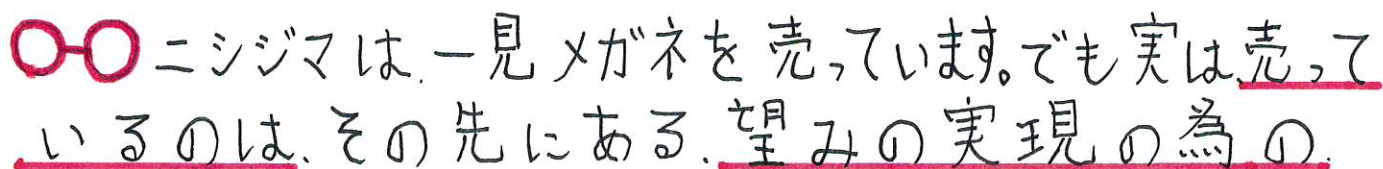 ニシジマは、一見メガネを売っています。でも実は、売って
いるのは、その先にある、望みの実現の為の、